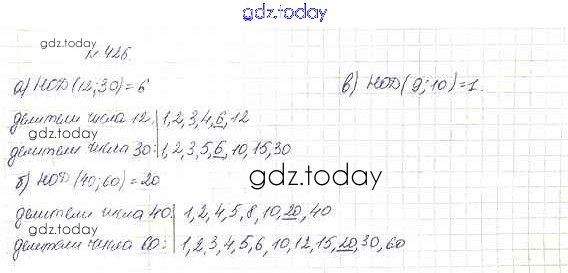 gdz.today
gdz.today
№426.
а) НОД(12;30)=6
делители числа 12: 1,2,3,4,6,12
gdz.today
делители числа 30: 1,2,3,5,6,10,15,30
б) НОД(40;60)=20
gdz.today
делители числа 40: 1,2,4,5,8,10,20,40
gdz.today
делители числа 60: 1,2,3,4,5,6,10,12,15,20,30,60
в) НОД(9;10)=1.